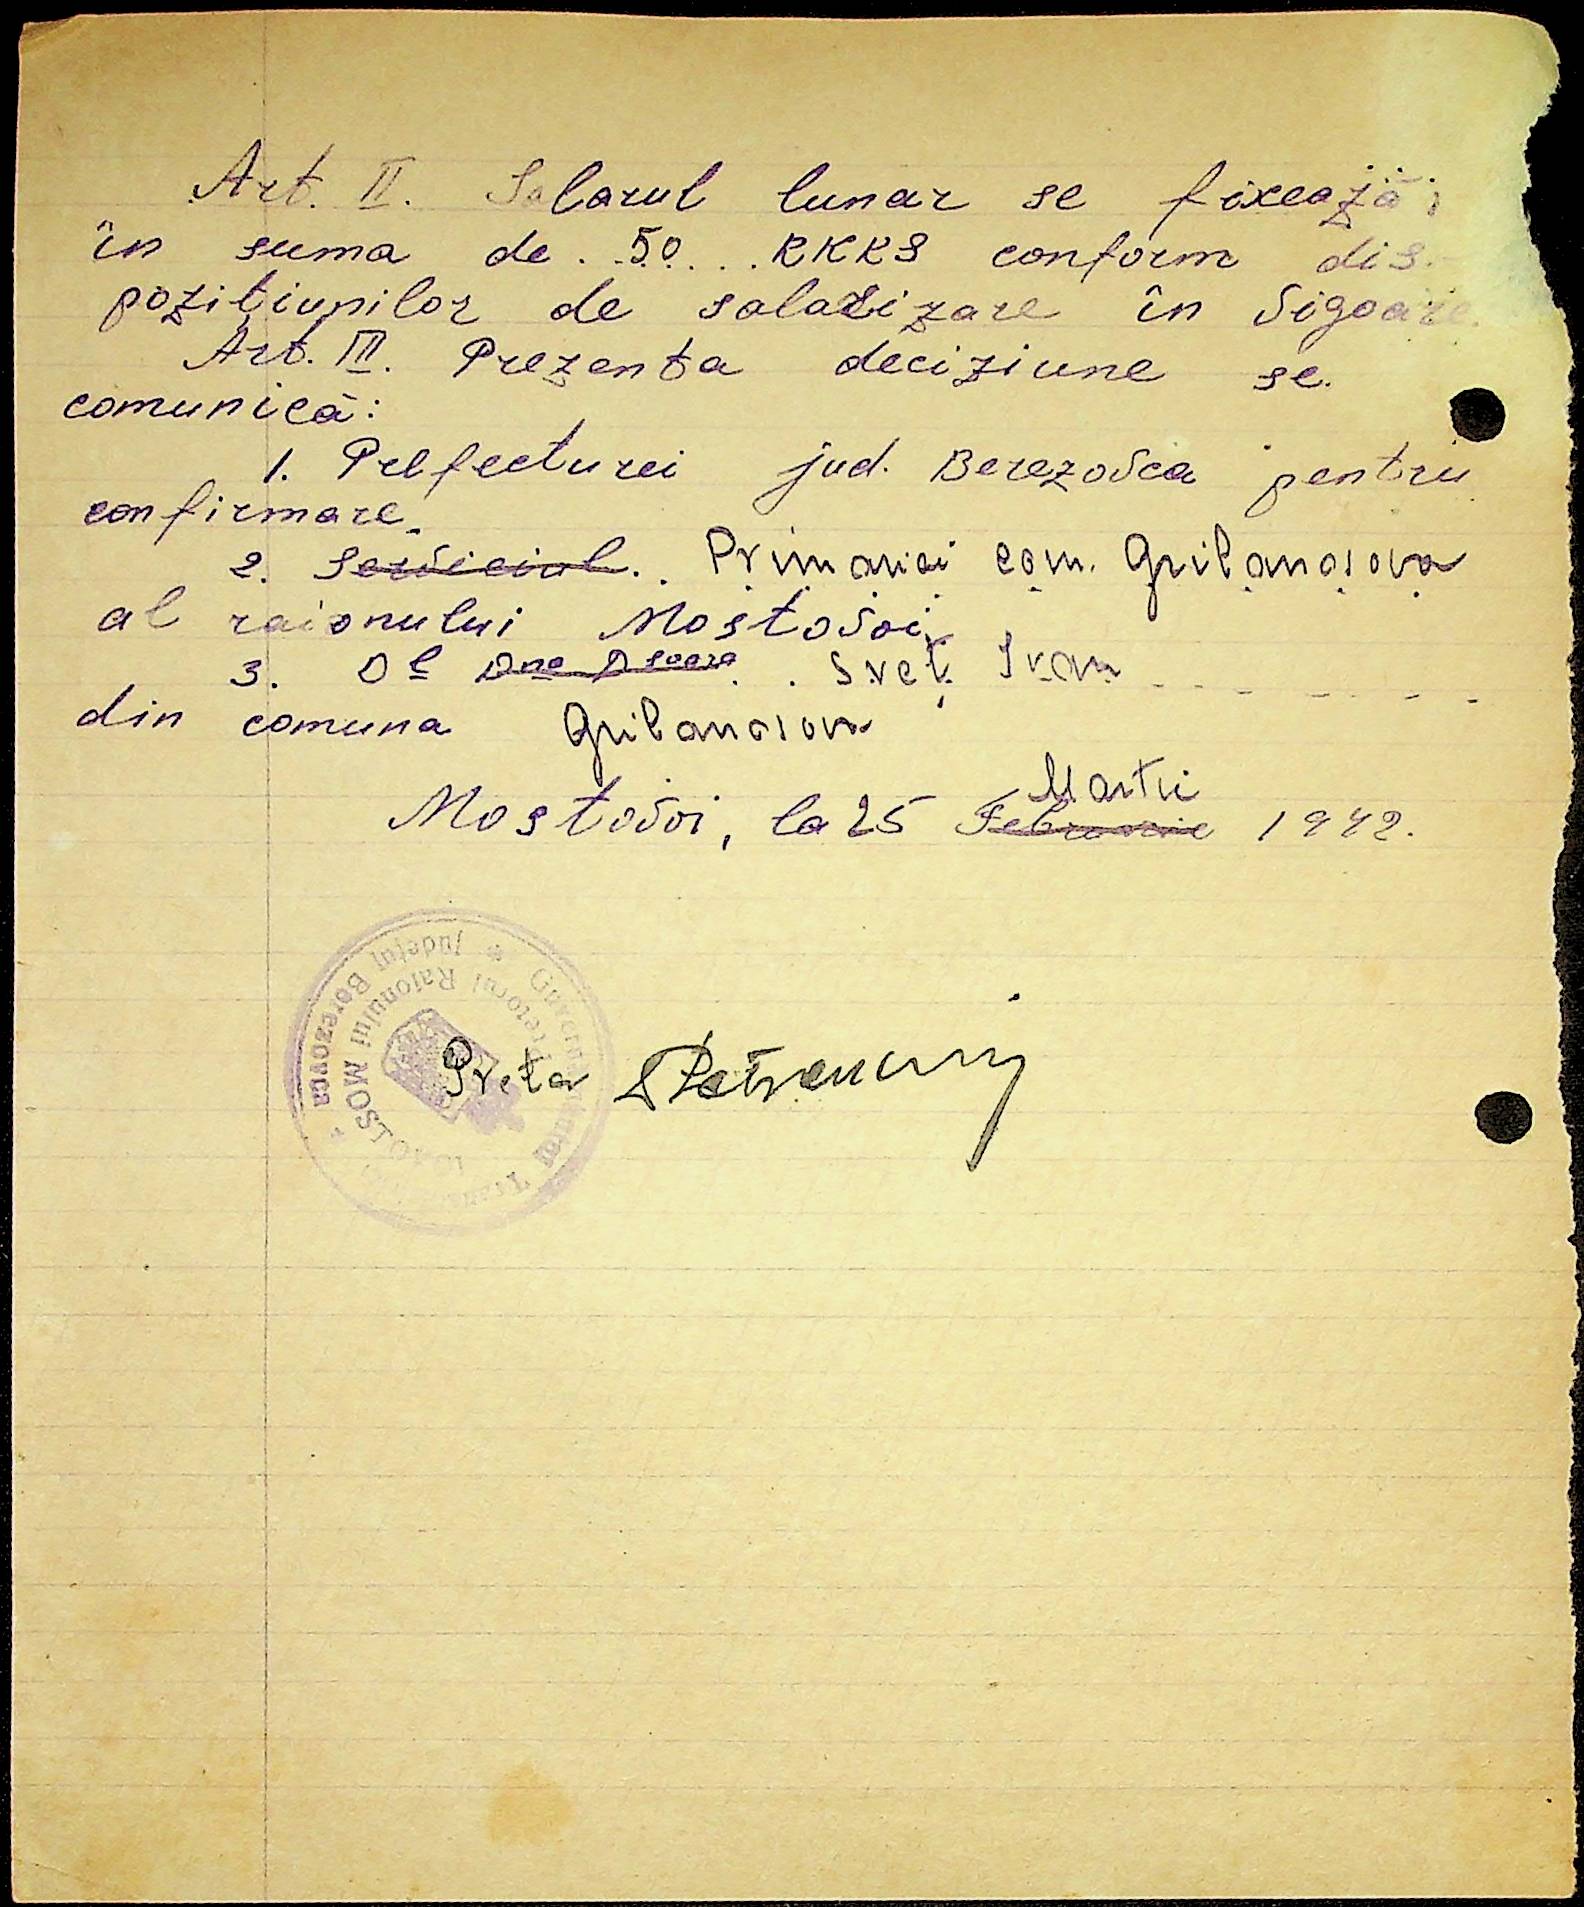 Art. II. Salarul lunar se fixează
în suma de . . 50 . . . RKKS conform dis-
pozițiunilor de salarizare în vigoare.
Art. III. Prezenta deciziune se
comunică:
1. Prefecturei jud. Berezovca pentru
confirmare.
2. Serviciul . . Primariei com. Gribanosova
al raionului Mostovoi
3. Dl Dna Dsoara . . Sveț Ivan
din comuna Gribanosova
Martie
Mostovoi, la 25 Februarie 1942.
Județul Berezovca
Pretorul Raionului MOSTOVOI
Pretor